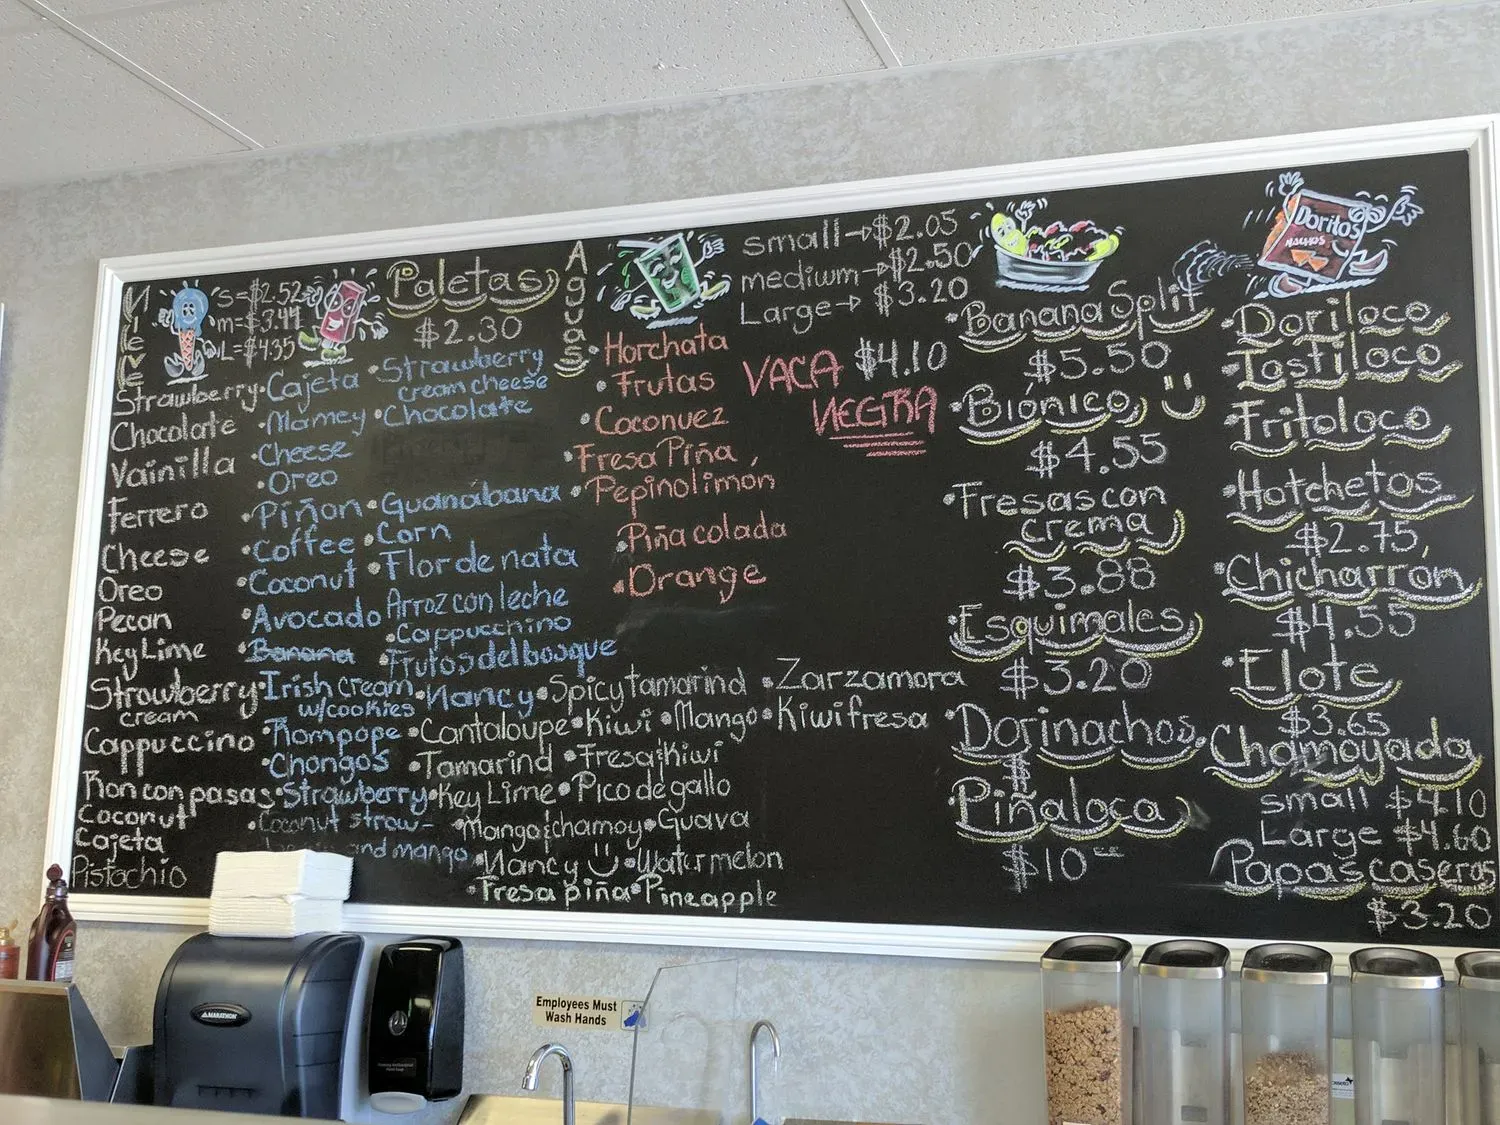 Nieve
s=$2.52
m=$3.44
L=$4.35
Strawberry
Chocolate
Vainilla
Ferrero
Cheese
Oreo
Pecan
Key Lime
Strawberry
cream
Cappuccino
Ron con pasas
Coconut
Cajeta
Pistachio
Paletas
$2.30
•Cajeta
•Mamey
•Cheese
•Oreo
•Piñon
•Coffee
•Coconut
•Avocado
•Banana
•Irish cream
w/cookies
•Rompope
•Chongos
•Strawberry
•Coconut straw-
and mango
•Strawberry
cream cheese
•Chocolate
•Guanábana
•Corn
•Flor de nata
Arroz con leche
•Cappucchino
•Frutos del bosque
•Nancy •Spicy tamarind •Zarzamora
•Cantaloupe •Kiwi •Mango •Kiwi fresa
•Tamarind •Fresa¦kiwi
•Key Lime •Pico de gallo
•Mango¦chamoy •Guava
•Nancy •Watermelon
•Fresa piña •Pineapple
Aguas
small→$2.05
medium→$2.50
Large→$3.20
•Horchata
•Frutas
•Coconuez
•Fresa Piña
•Pepino limón
•Piña colada
•Orange
VACA $4.10
NEGRA
•Banana Split
$5.50
•Biónico
$4.55
•Fresas con
crema
$3.88
•Esquimales
$3.20
•Dorinachos
$
•Piñaloca
$10
Doritos
NACHOS
•Doriloco
•Tostiloco
•Fritoloco
•Hotchetos
$2.75
•Chicharrón
$4.55
•Elote
$3.65
•Chamoyada
small $4.10
Large $4.60
•Papas caseras
$3.20
MARATHON
Employees Must
Wash Hands